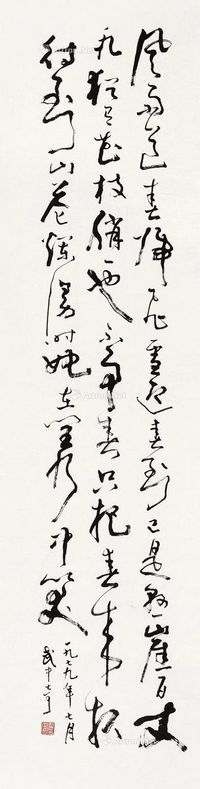 风雨送春归飞雪迎春到已是悬崖百丈
冰犹有花枝俏也不争春只把春来报
待到山花烂漫时她在丛中笑
一九七九年七月
武中奇